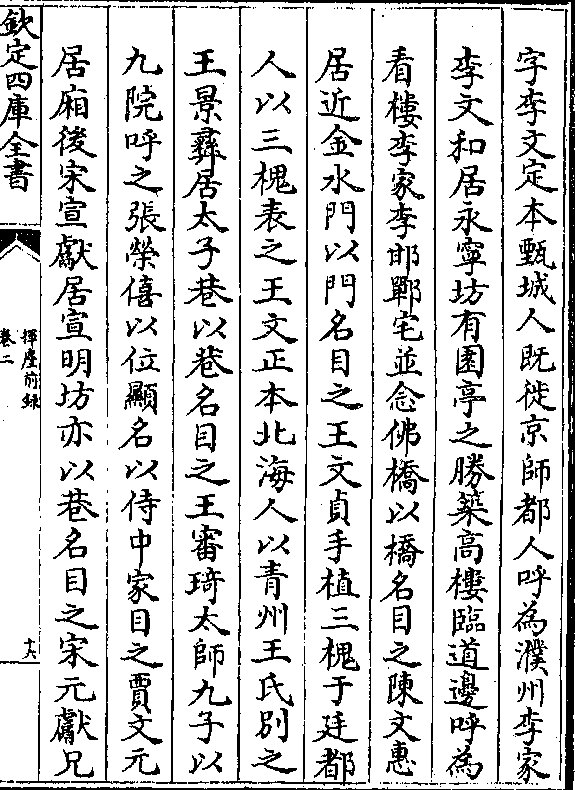 字李文定本甄城人既徙京師都人呼為濮州李家
李文和居永寧坊有園亭之勝築髙樓臨道邊呼為
看樓李家李邯鄲宅並念佛橋以橋名目之陳文惠
居近金水門以門名目之王文貞手植三槐于廷都
人以三槐表之王文正本北海人以青州王氏别之
王景彛居太子巷以巷名目之王審琦太師九子以
九院呼之張榮僖以位顯名以侍中家目之賈文元
居廂後宋宣獻居宣明坊亦以巷名目之宋元獻兄
欽定四庫全書
揮麈前録
卷二
十六